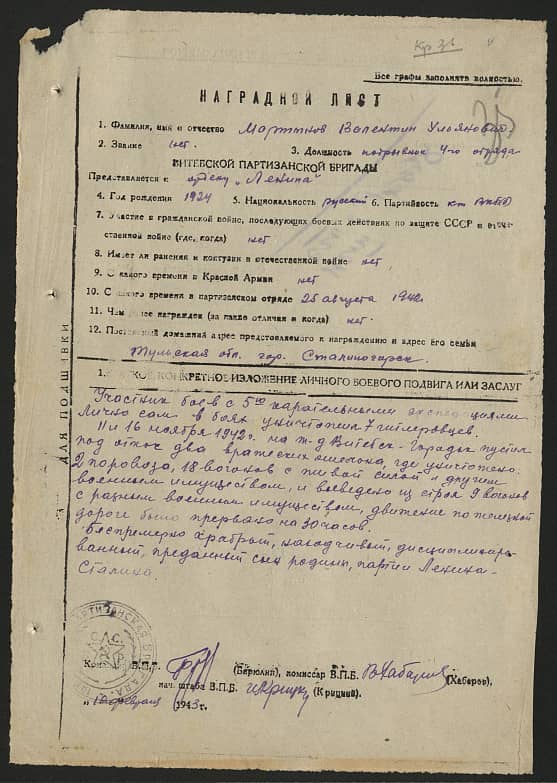 Кр 31
Все графы заполнять полностью.
НАГРАДНОЙ ЛИСТ
1. Фамилия, имя и отчество Мартынов Валентин Ульянович
2. Звание нет. 3. Должность подрывник 4го отряда
ВИТЕБСКОЙ ПАРТИЗАНСКОЙ БРИГАДЫ
Представляется к ордену „Ленина"
4. Год рождения 1924 5. Национальность русский 6. Партийность кт ВКПб
7. Участие в гражданской войне, последующих боевых действиях по защите СССР и отече-
ственной войне (где, когда) нет
8. Имеет ли ранения и контузии в отечественной войне нет.
9. С какого времени в Красной Армии нет
10. С какого времени в партизанском отряде 25 августа 1942г.
11. Чем ранее награжден (за какие отличия и когда) нет.
12. Постоянный домашний адрес представляемого к награждению и адрес его семьи
Тульская обл. гор. Сталиногорск.
КОНКРЕТНОЕ ИЗЛОЖЕНИЕ ЛИЧНОГО БОЕВОГО ПОДВИГА ИЛИ ЗАСЛУГ
Участник боев с 5ю карательными экспедициями
Лично сам в боях уничтожил 7 гитлеровцев.
11 и 16 ноября 1942г. на ж-д Витебск-Городок пустил
под откос два вражеских эшелона, где уничтожено:
2 паровоза, 18 вагонов с живой силой и другим
военным имуществом, и выведено из строя 9 вагонов
с разным военным имуществом, движение по железной
дороге было прервано на 30 часов.
Беспремерно храбрый, находчивый, дисциплиниро-
ванный, преданный сын родины, партии Ленина-
Сталина.
ДЛЯ ПОДШИВКИ
ПАРТИЗАНСКАЯ БРИГАДА
Ком В.П.Б. (Бирюлин), комиссар В.П.Б. Хабаров (Хабаров),
нач. штаба В.П.Б. (Крицкий)
„ февраля 1943г.